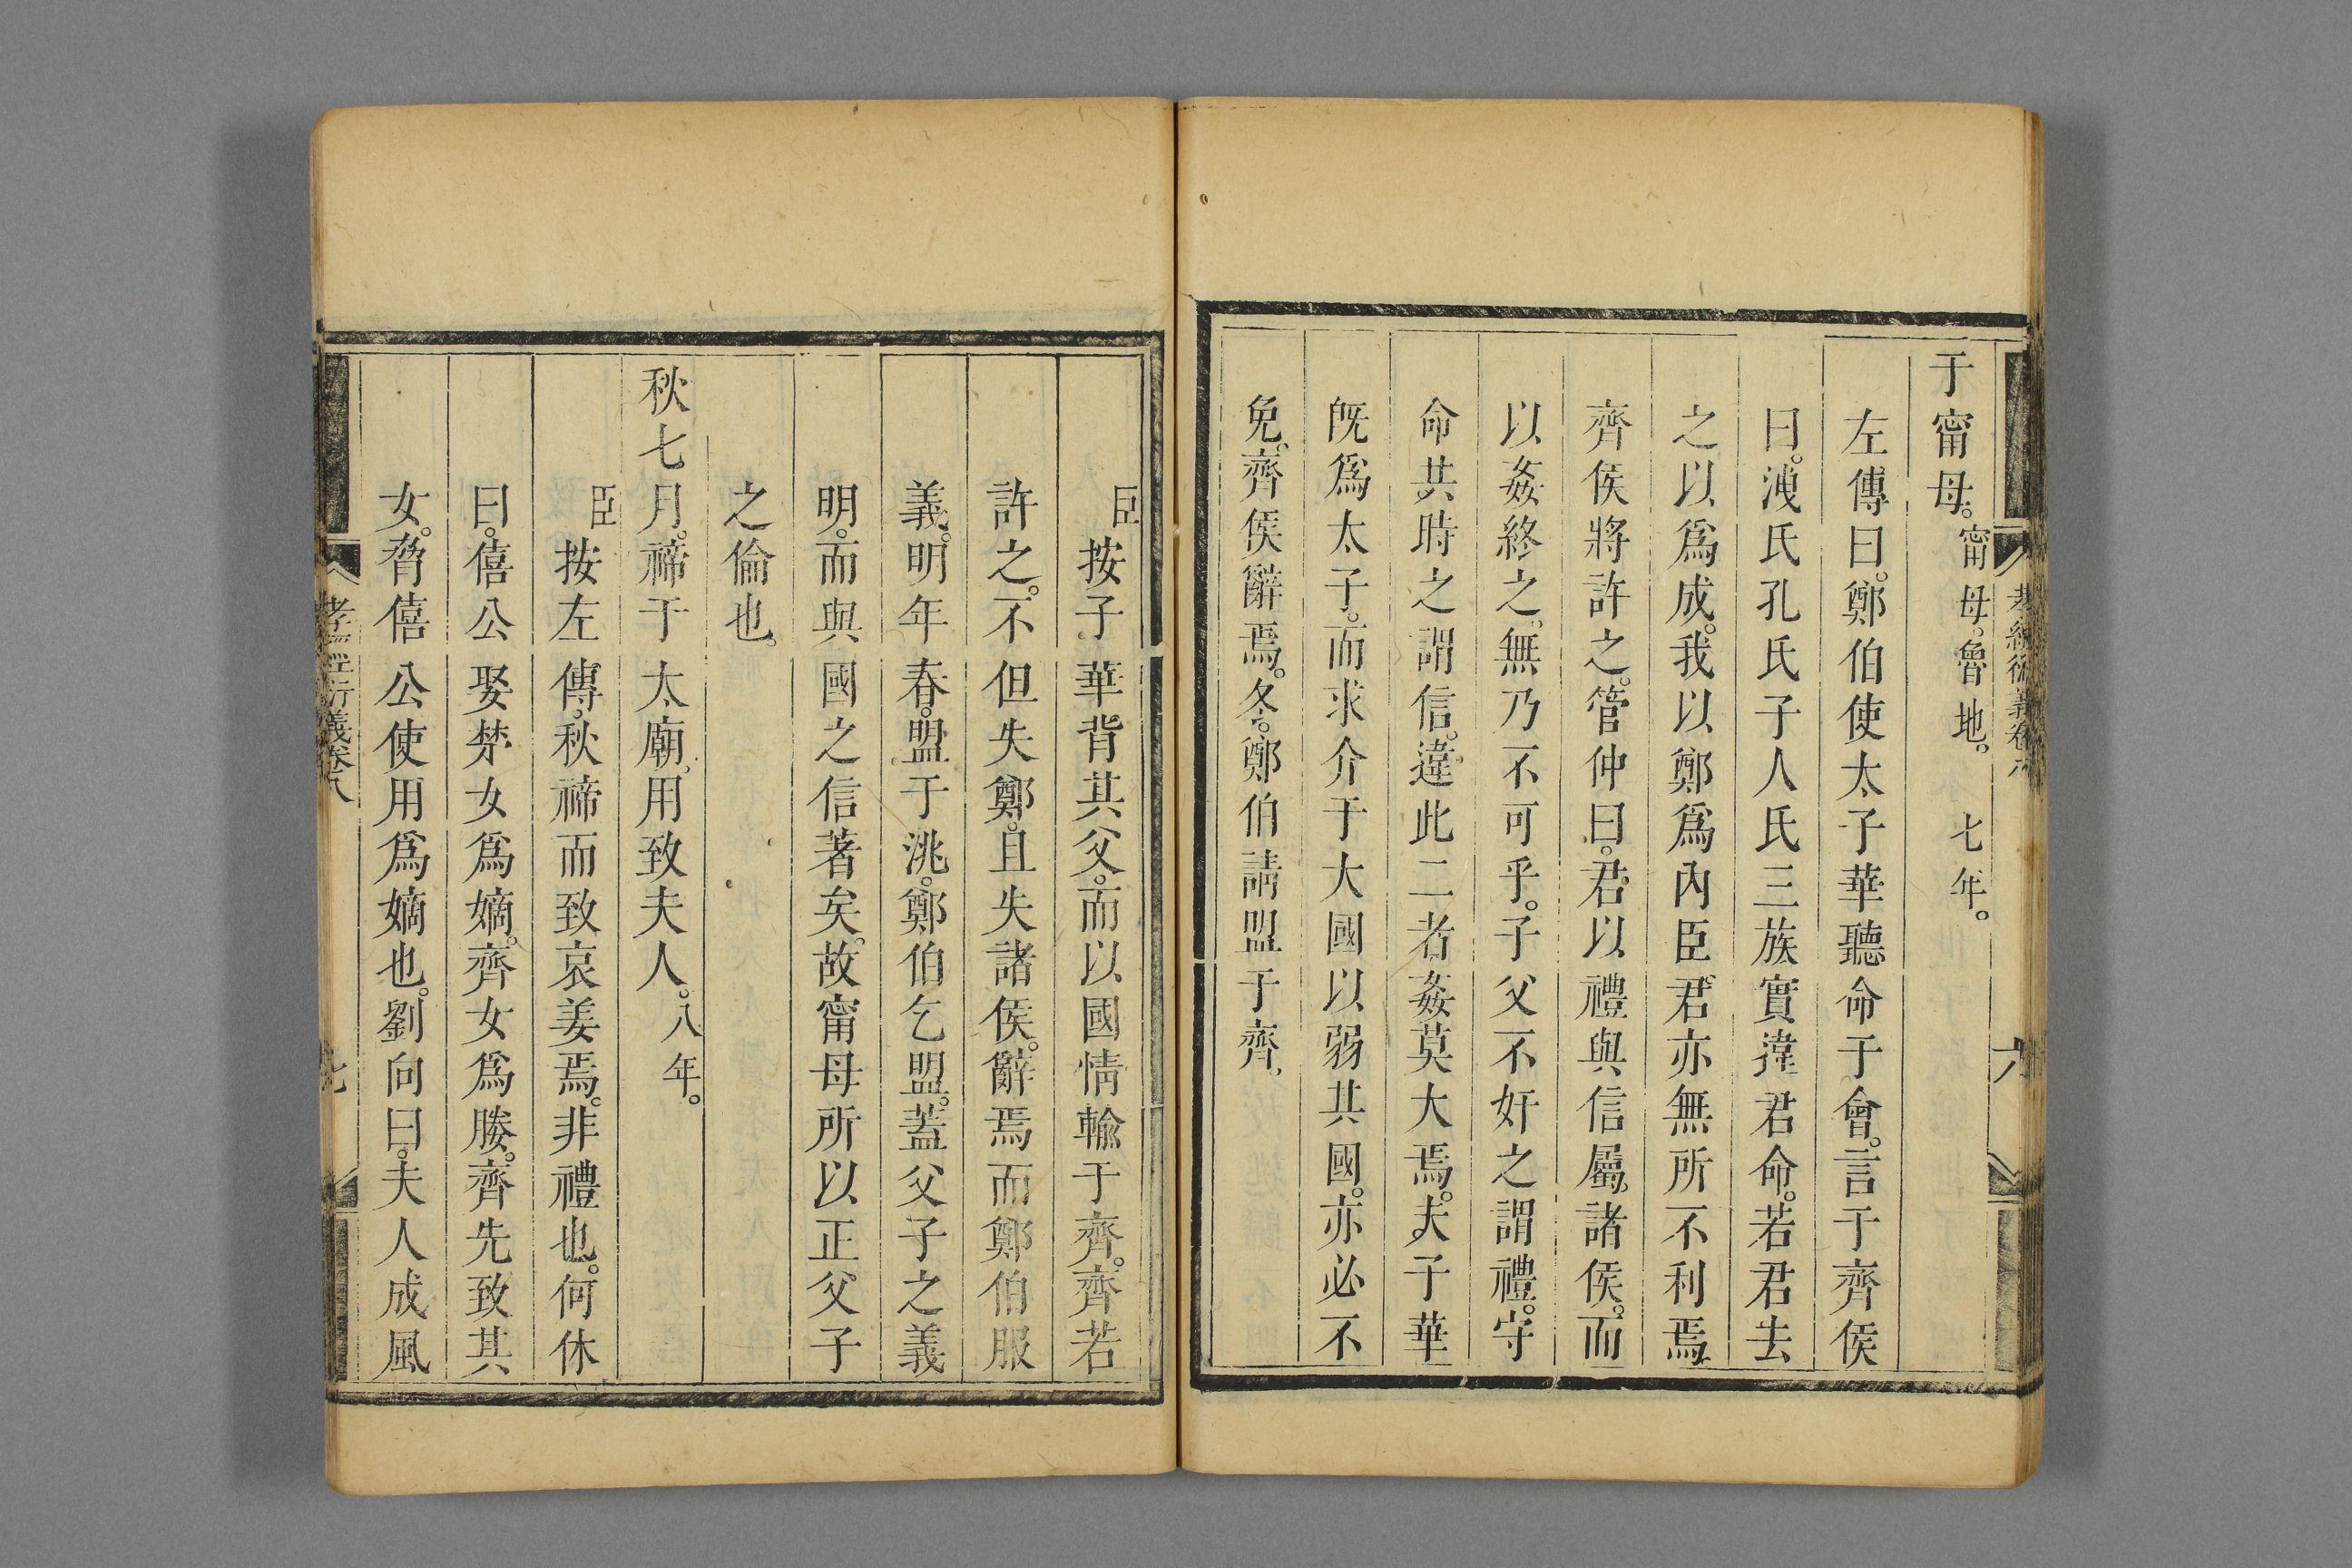 于甯母。甯母。魯地。七年。
左傳曰。鄭伯使太子華聽命于會。言于齊侯
曰。洩氏孔氏子人氏三族實違君命。若君去
之以爲成。我以鄭爲內臣。君亦無所不利焉。
齊侯將許之。管仲曰。君以禮與信屬諸侯。而
以姦終之。無乃不可乎。子父不奸之謂禮。守
命共時之謂信。違此二者姦莫大焉。夫子華
既爲太子。而求介于大國以弱其國。亦必不
免。齊侯辭焉。冬。鄭伯請盟于齊。
臣按子華背其父。而以國情輸于齊。齊若
許之。不但失鄭。且失諸侯。辭焉而鄭伯服
義。明年春。盟于洮。鄭伯乞盟。蓋父子之義
明。而與國之信著矣。故甯母所以正父子
之倫也。
秋七月。禘于太廟。用致夫人。八年。
臣按左傳。秋禘而致哀姜焉。非禮也。何休
曰。僖公娶楚女爲嫡。齊女爲媵。齊先致其
女。脅僖公使用爲嫡也。劉向曰。夫人成風
孝經衍義卷八